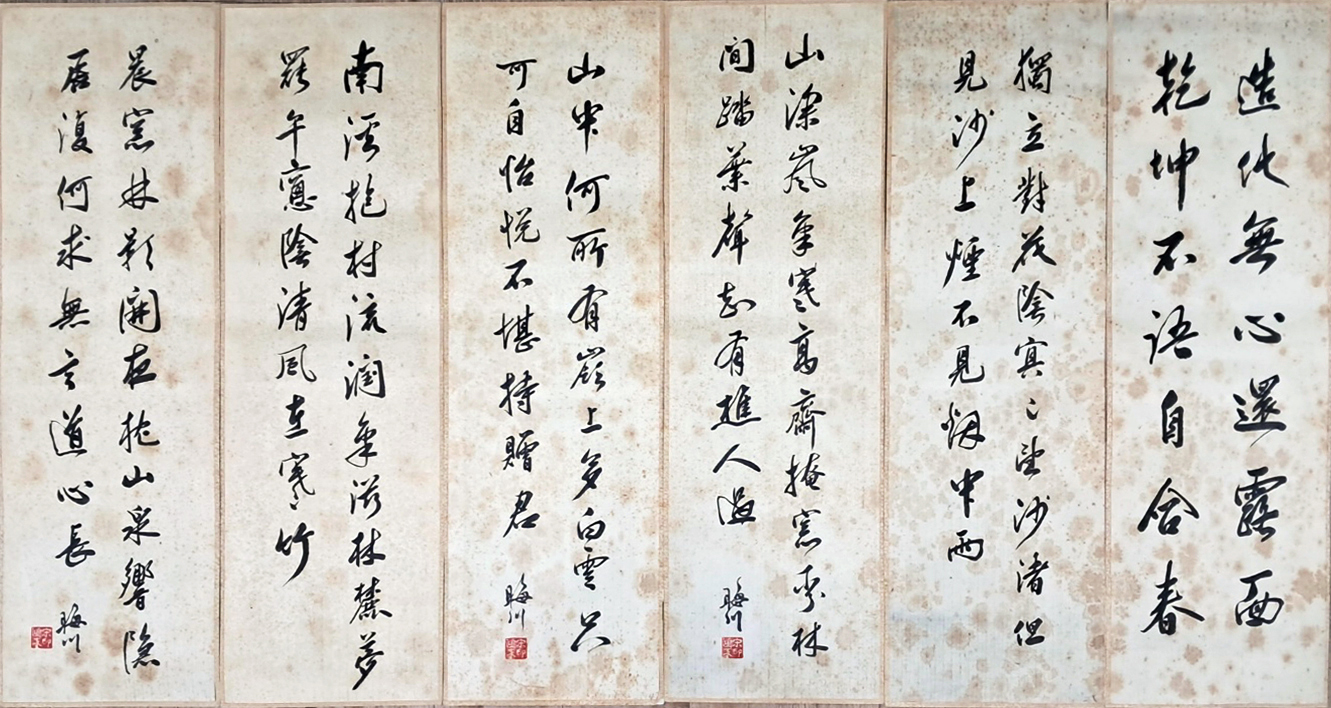 造化無心還露面
乾坤不語自含春
獨立對花陰冥〻望沙渚但
見沙上煙不見烟中雨
山深嵐氣寒高齋掩窓臥林
間踏葉聲知有樵人過
晦川
山中何所有嶺上多白雲只
可自怡悅不堪持贈君
晦川
南溪抱村流潤氣滋林麓夢
罷午窓陰清風在寒竹
晨窓林影開夜枕山泉響隱
居復何求無言道心長
晦川